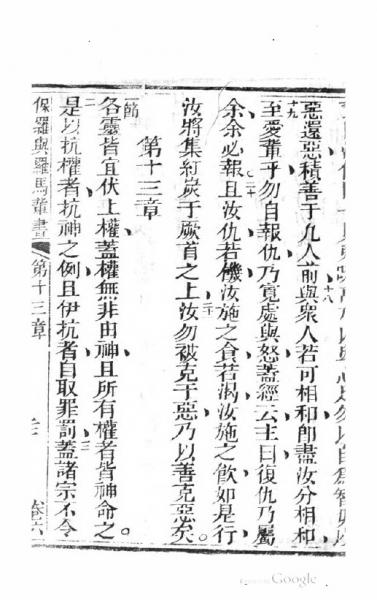 惡還惡積善于凡人前與衆人若可相和卽盡汝分相和
十八
十九
至愛輩乎勿自報仇乃寬處與怒蓋經云主曰復仇乃屬
二十
余余必報且汝仇若饑汝施之食若渴汝施之飲如是行
汝將集紅炭于厥首之上汝勿被克于惡乃以善克惡矣。
第十三章
一節
各靈皆宜伏上權蓋權無非由神且所有權者皆神命之。
二
是以抗權者抗神之例且伊抗者自取罪罰蓋諸宗不令
三
保羅與羅馬輩書
第十三章
卷六
Google